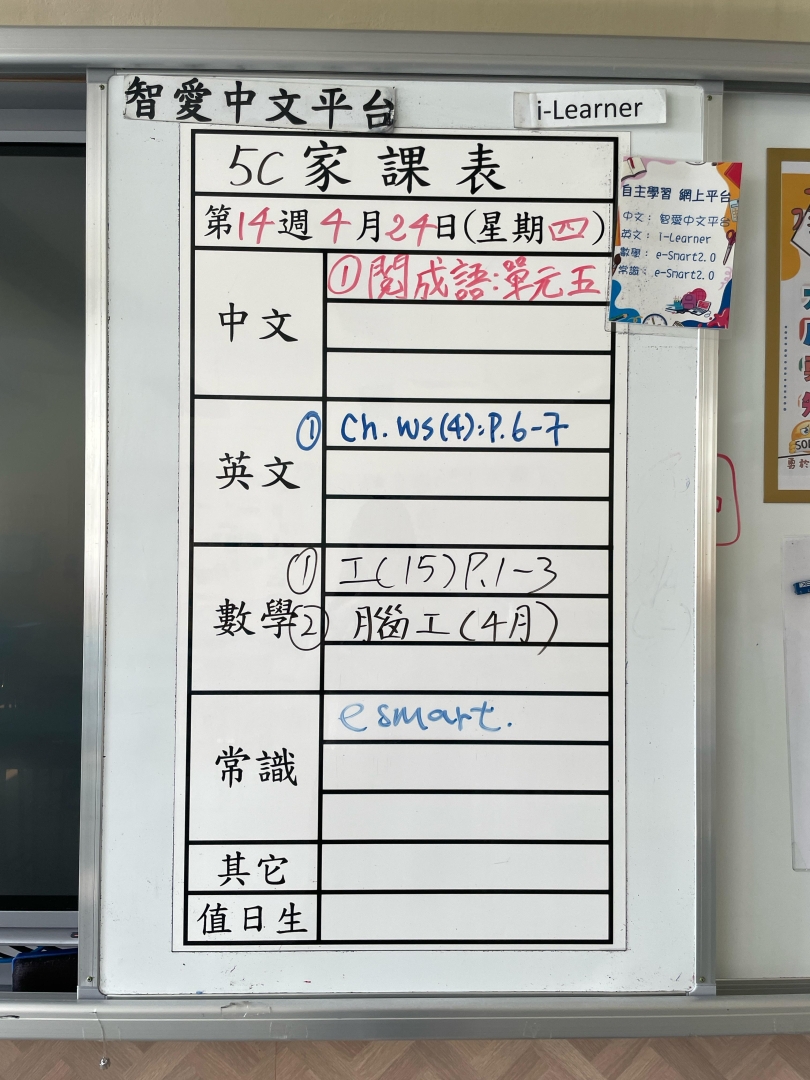 智愛中文平台
i-Learner
5C 家課表
第14週4月24日(星期四)
中文
①閱成語:單元五
英文
① Ch. WS(4):P.6-7
數學
① 工(15)P.1-3
② 腦工(4月)
常識
e smart.
其它
值日生
自主學習 網上平台
中文: 智愛中文平台
英文: i-Learner
數學: e-Smart2.0
常識: e-Smart2.0